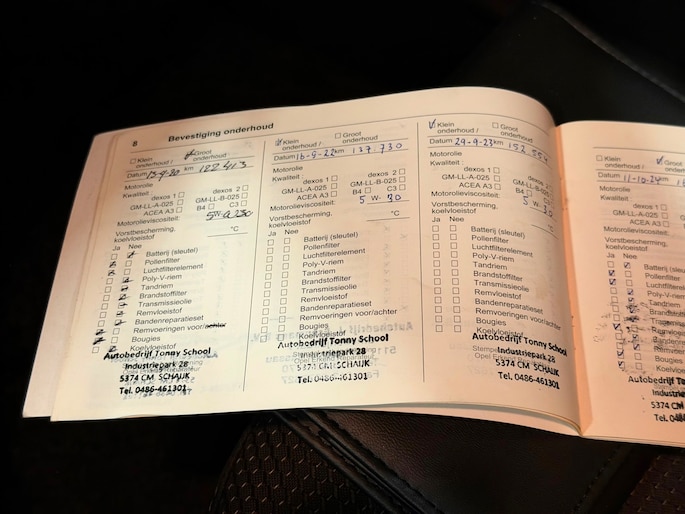 8 Bevestiging onderhoud
Klein onderhoud / Groot onderhoud
Datum km 122413
Motorolie
Kwaliteit :
dexos 1 dexos 2
GM-LL-A-025 GM-LL-B-025
ACEA A3 B4 C3
Motorolieviscositeit:
Vorstbescherming, koelvloeistof °C
Ja Nee
Batterij (sleutel)
Pollenfilter
Luchtfilterelement
Poly-V-riem
Tandriem
Brandstoffilter
Transmissieolie
Remvloeistof
Bandenreparatieset
Remvoeringen voor/achter
Bougies
Koelvloeistof
Autobedrijf Tonny School
Industriepark 28
5374 CM SCHAIJK
Tel. 0486-461301
Klein onderhoud / Groot onderhoud
Datum 16-9-22 km 137.730
Motorolie
Kwaliteit :
dexos 1 dexos 2
GM-LL-A-025 GM-LL-B-025
ACEA A3 B4 C3
Motorolieviscositeit: 5 W- 30
Vorstbescherming, koelvloeistof °C
Ja Nee
Batterij (sleutel)
Pollenfilter
Luchtfilterelement
Poly-V-riem
Tandriem
Brandstoffilter
Transmissieolie
Remvloeistof
Bandenreparatieset
Remvoeringen voor/achter
Bougies
Koelvloeistof
Autobedrijf Tonny School
Industriepark 28
5374 CM SCHAIJK
Tel. 0486-461301
Klein onderhoud / Groot onderhoud
Datum 29-9-23 km
Motorolie
Kwaliteit :
dexos 1 dexos 2
GM-LL-A-025 GM-LL-B-025
ACEA A3 B4 C3
Motorolieviscositeit: 5 W- 30
Vorstbescherming, koelvloeistof °C
Ja Nee
Batterij (sleutel)
Pollenfilter
Luchtfilterelement
Poly-V-riem
Tandriem
Brandstoffilter
Transmissieolie
Remvloeistof
Bandenreparatieset
Remvoeringen voor/achter
Bougies
Koelvloeistof
Autobedrijf Tonny School
Industriepark 28
5374 CM SCHAIJK
Tel. 0486-461301
Klein onderhoud / Groot onderhoud
Datum 11-10-24 km
Motorolie
Kwaliteit :
dexos 1
GM-LL-A-025
ACEA A3
Motorolieviscositeit:
Vorstbescherming, koelvloeistof
Ja Nee
Batterij (sleutel)
Pollenfilter
Luchtfilterelement
Poly-V-riem
Tandriem
Autobedrijf
5374 CM
Tel.